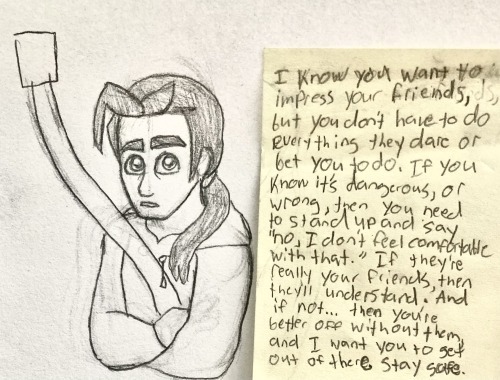 I know you want to
impress your friends,
but you don't have to do
everything they dare or
bet you to do. If you
know it's dangerous, or
wrong, then you need
to stand up and say
"no, I don't feel comfortable
with that." If they're
really your friends, then
they'll understand. And
if not... then you're
better off without them,
and I want you to get
out of there. Stay safe.